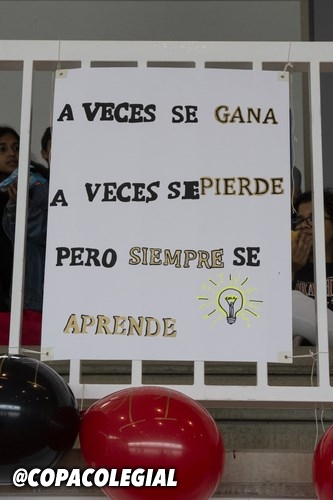 A VECES SE GANA
A VECES SE PIERDE
PERO SIEMPRE SE
APRENDE
@COPACOLEGIAL